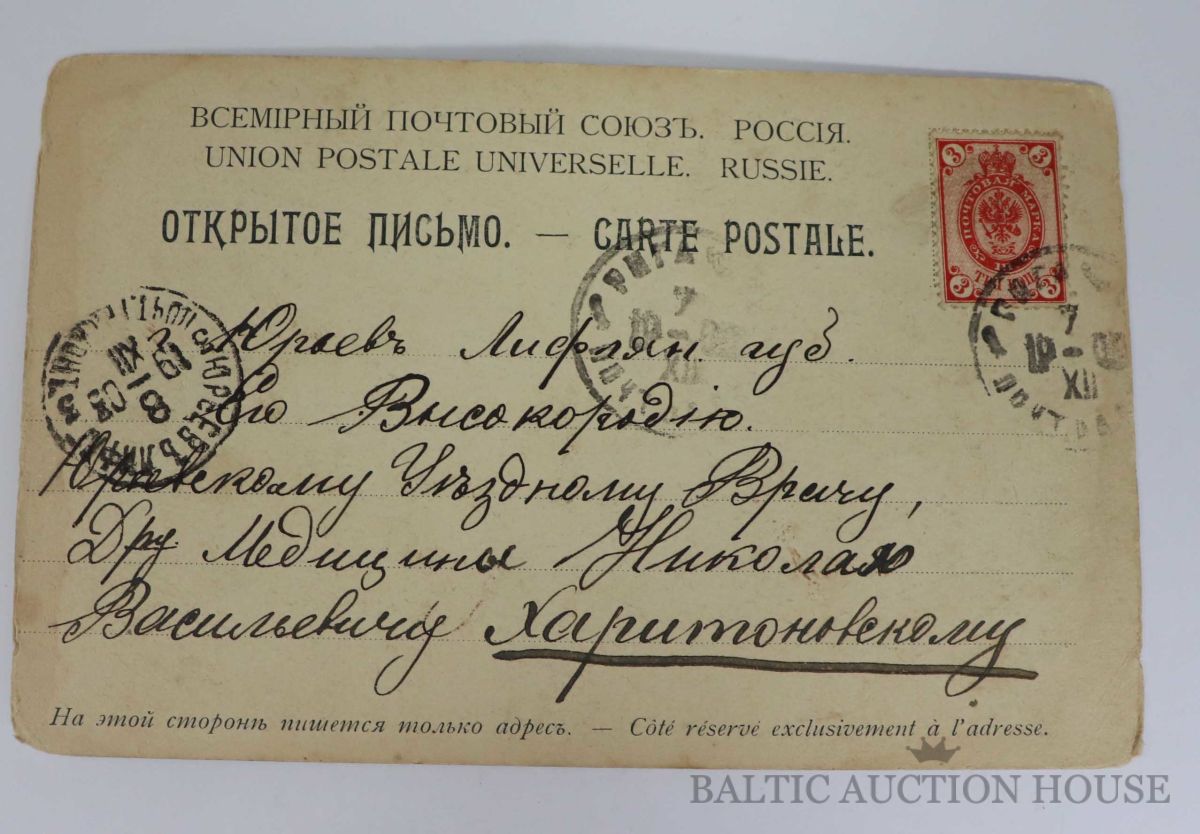 ВСЕМІРНЫЙ ПОЧТОВЫЙ СОЮЗЪ. РОССІЯ.
UNION POSTALE UNIVERSELLE. RUSSIE.
ОТКРЫТОЕ ПИСЬМО. — CARTE POSTALE.
3 3
ПОЧТОВАЯ МАРКА
3 ТРИ КОП. 3
РИГА
7
XII
7
XII
ЮРЬЕВЪ
8
XII
03
г. Юрьевъ Лифлян. губ.
Его Высокородію.
Юрьевскому Уѣздному Врачу,
Дру Медицины Николаю
Васильевичу Харитоновскому
На этой сторонѣ пишется только адресъ. — Côté réservé exclusivement à l'adresse.
BALTIC AUCTION HOUSE